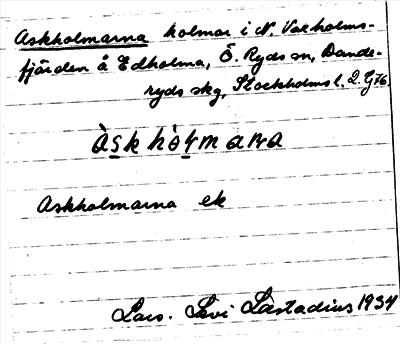 Askholmarna holmar i N. Vaxholms-
fjärden å Edholma, Ö. Ryds sn, Dande-
ryds skg, Stockholms l. 2. G76.
À s̲ k h ò l̲ m a R a
Askholmarna ek
Lars. Levi Læstadius 1934